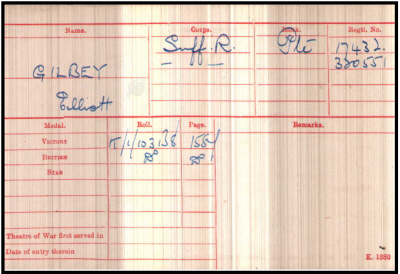 Name. Corps. Rank. Regtl. No.
Suff. R. Pte 17432.
GILBEY — " — 330551
Elliott
Medal. Roll. Page. Remarks.
VICTORY T/1/103B8 1554
BRITISH do do
STAR
Theatre of War first served in
Date of entry therein K. 1380